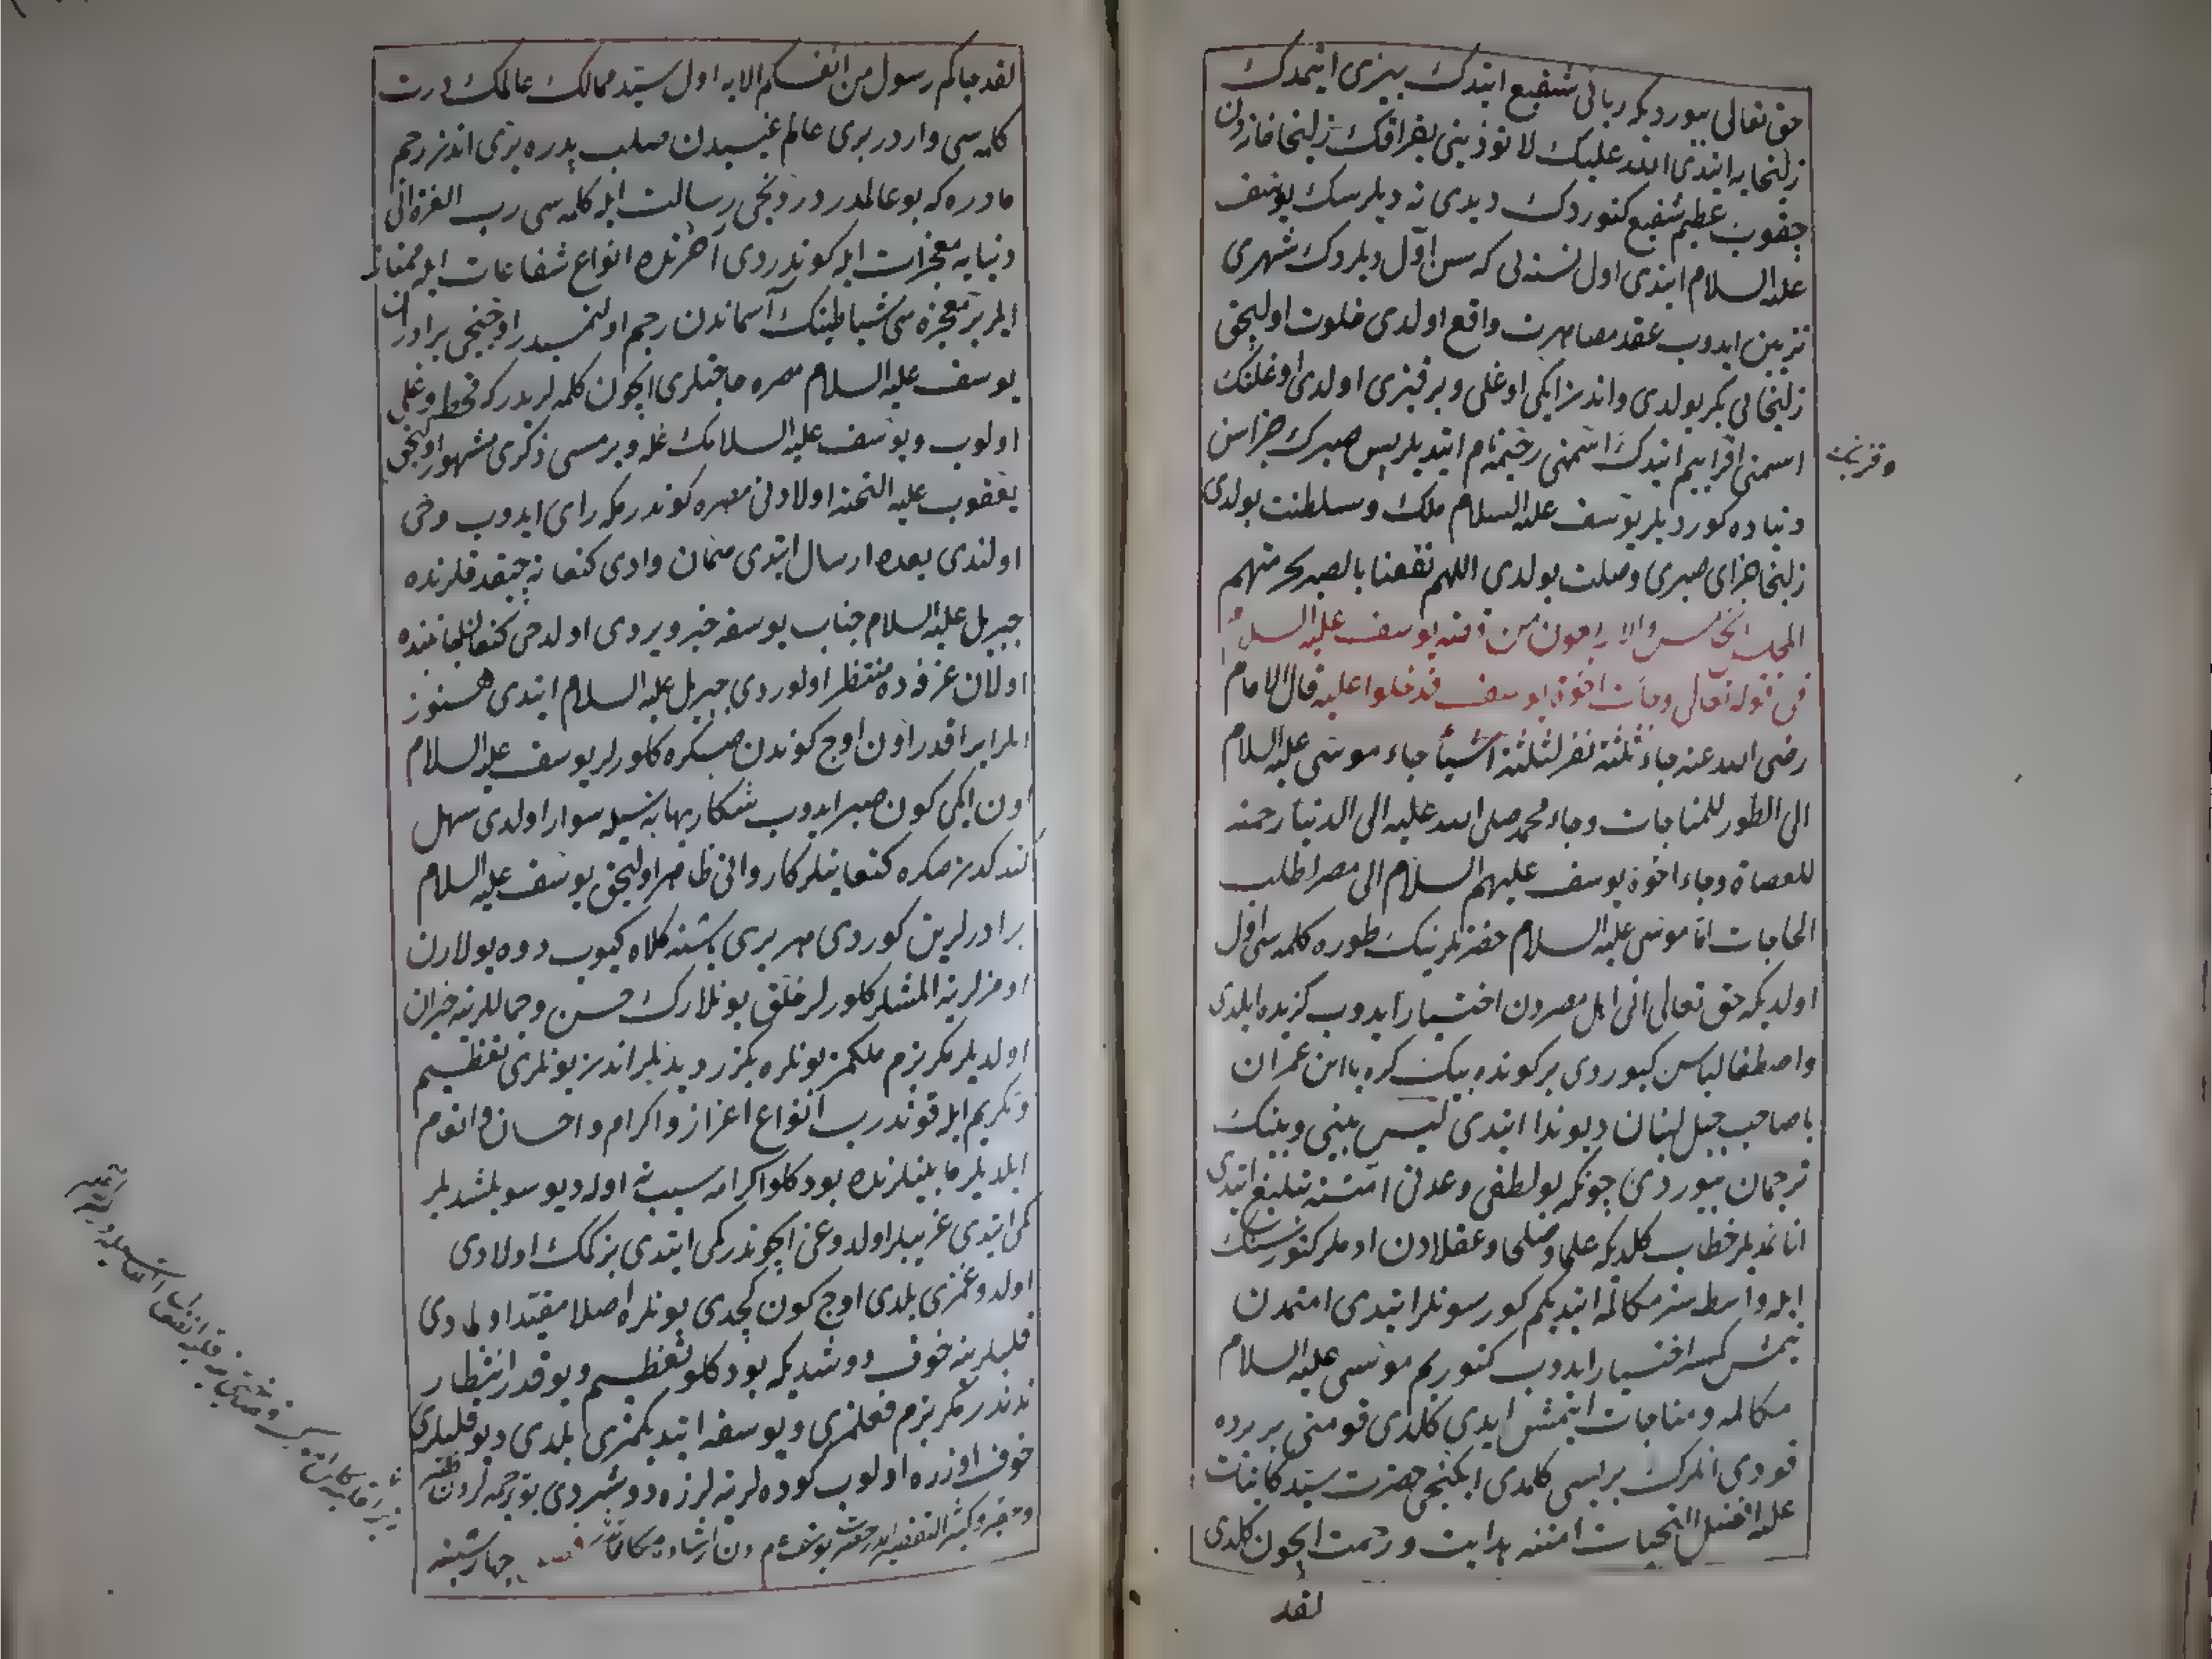 حق تعالی بیوردیکه ربانی شفیع ایتدک بیزی ایتمدک
زلیخایه ایتدی الله علیک لا تؤذینی بفراقک زلیخا
یعقوب عظیم شفیع کتوردک دیدی نه دیلرسک یوسف
علیه السلام ایتدی اول نسنه لی که سن اول دیلردک شهری
تزیین ایدوب عقد مصاهرت واقع اولدی خلوت اولیجق
زلیخایی بکر بولدی واندن ایکی اوغلی وبر قیزی اولدی اوغلنک
اسمنی افراییم ایتدک اسمنی رحیمه نام ایتدیلر پس صبرک جزاسن
دنیاده کوردیلر یوسف علیه السلام ملک وسلطنت بولدی
زلیخا جزای صبری وصلت بولدی اللهم نفعنا بالصبر بحرمتهم
المجلس الخامس والاربعون من قصه یوسف علیه السلام
فی قوله تعالی وجائت اخوة یوسف فدخلوا علیه قال الامام
رضی الله عنه جاء ثلثة نفر لثلثة اشیأ جاء موسی علیه السلام
الی الطور للمناجات وجاء محمد صلی الله علیه الی الدنیا رحمة
للعصاة وجاء اخوة یوسف علیهم السلام الی مصر لطلب
الحاجات اتا موسی علیه السلام حضرتلرینک طوره کلمه سی اول
اولدیکه حق تعالی انی اهل مصردن اختیار ایدوب کزیده ایلدی
واصطفا لباسن کیوردی بر کونده بیک کره یا ابن عمران
یا صاحب جبل لبنان دیو ندا ایتدی لیس بینی وبینک
ترجمان بیوردی چونکه بو لطفی وعدنی امتنه تبلیغ ایتدی
انانمدیلر خطاب کلدیکه علما وصلحا وعقلادن اوملر کتور سنک
ایله واسطه سز مکالمه ایتدیکم کورسونلر ایتدی امتمدن
یتمش کمسه اختیار ایدوب کتوریم موسی علیه السلام
مکالمه ومناجات ایتمش ایدی کلدی قومنی بر یرده
قودی انلرک بریسی کلمدی ایکنجی حضرت سید کاینات
علیه افضل التحیات امتنه هدایت ورحمت ایچون کلدی
لقد
وقزینک
لقد جاکم رسول من انفسکم الایه اول سید ممالک عالمک درت
کلمه سی واردر بری عالم غیبدن صلب پدره بری اندن رحم
مادره که بو عالمدر دردنجی رسالت ایله کلمه سی رب العزه انی
دنیایه معجزات ایله کوندردی آخرتده انواع شفاعات ایله
ایلر بر معجزه سی شیاطینک آسماندن رجم اولنمسیدر اوچنجی برادران
یوسف علیه السلام مصره حاجتلری ایچون کلمه لریدر که قحط وغلی
اولوب ویوسف علیه السلامک غله ویرمسی ذکری مشهور اولیجق
یعقوب علیه التحیه اولادنی مصره کوندرمکه رای ایدوب وحی
اولندی بعده ارسال ایتدی وادی کنعانه چیقدقلرنده
جبریل علیه السلام جناب یوسفه خبر ویردی اولدخی کنعان جانبنده
اولان غرفه ده منتظر اولوردی جبریل علیه السلام ایتدی هنوز
ایلر ایراقدر اون اوچ کوندن صکره کلورلر یوسف علیه السلام
اون ایکی کون صبر ایدوب شکار بهانه سیله سوار اولدی سهل
کتدکدن صکره کنعانیلر کاروانی ظاهر اولیجق یوسف علیه السلام
برادرلرین کوردی هر بری باشنه کلاه کیوب دوه یولارن
اوموزلرینه المشلر کلورلر خلق بونلارک حسن وجماللرینه حیران
اولدیلر مکر بزم ملکمز بونلره بکزر دیدیلر اندن بونلری تعظیم
وتکریم ایله قوندرب انواع اعزاز واکرام واحسان وانعام
ایلدیلر مابینلرنده بو دکلو اکرامه سبب نه اوله دیو سویلشدیلر
کمی ایتدی غریبلر اولدوغی ایچوندر کمی ایتدی بز کمک اولادی
اولدوغمزی بلدی اوچ کون کچدی بونلره اصلا مقید اولمادی
قلبلرینه خوف دوشدیکه بو دکلو تعظیم وبو قدر انتظار
ندندر مکر بزم فعلمزی ویوسفه ایتدیکمزی بلدی دیو قلبلری
خوف اوزره اولوب کوده لرینه لرزه دوشردی
چهارشنبه